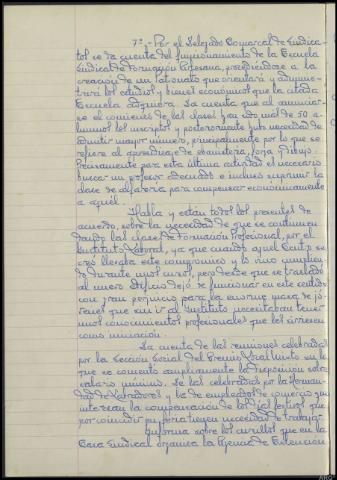 7º.- Por el Delegado Comarcal de Sindica-
tos se da cuenta del funcionamiento de la Escuela
Sindical de Formación Artesana, procediéndose a la
creación de un Patronato que orientará y adminis-
trará los estudios y bienes económicos que la citada
Escuela adquiera. Da cuenta que al anunciar-
se el comienzo de las clases han sido mas de 50 a-
lumnos los inscritos y posteriormente hubo necesidad de
admitir mayor número, principalmente por lo que se
refiere al aprendizaje de ebanistería, forja
Precisamente para esta última actividad es necesario
buscar un profesor adecuado e incluso suprimir la
clase de alfarería para compensar económicamente
a aquel.
Habla y están todos los presentes de
acuerdo, sobre la necesidad de que se continúen
dando las clases de Formación Profesional, por el
Instituto Laboral, ya que cuando aquel Centro se
creó llevaba este compromiso y lo vino cumplien-
do durante unos cursos, pero desde que se trasladó
al nuevo edificio dejó de funcionar en este sentido
con gran perjuicio para la enorme masa de jó-
venes que sin ir al Instituto necesitaban tener
unos conocimientos profesionales que les sirviesen
como iniciación.
Da cuenta de las reuniones celebradas
por la Sección Social del Gremio Local Mixto en la
que se comentó ampliamente la disposición sobre
salario mínimo. De las celebradas por la Herman-
dad de Labradores y la de empleados de comercio que
interesan la compensación de los días festivos que
por coincidir en feria tienen necesidad de trabajar.
Informa sobre los cursillos que en la
Casa Sindical organiza la Agencia de Extensión